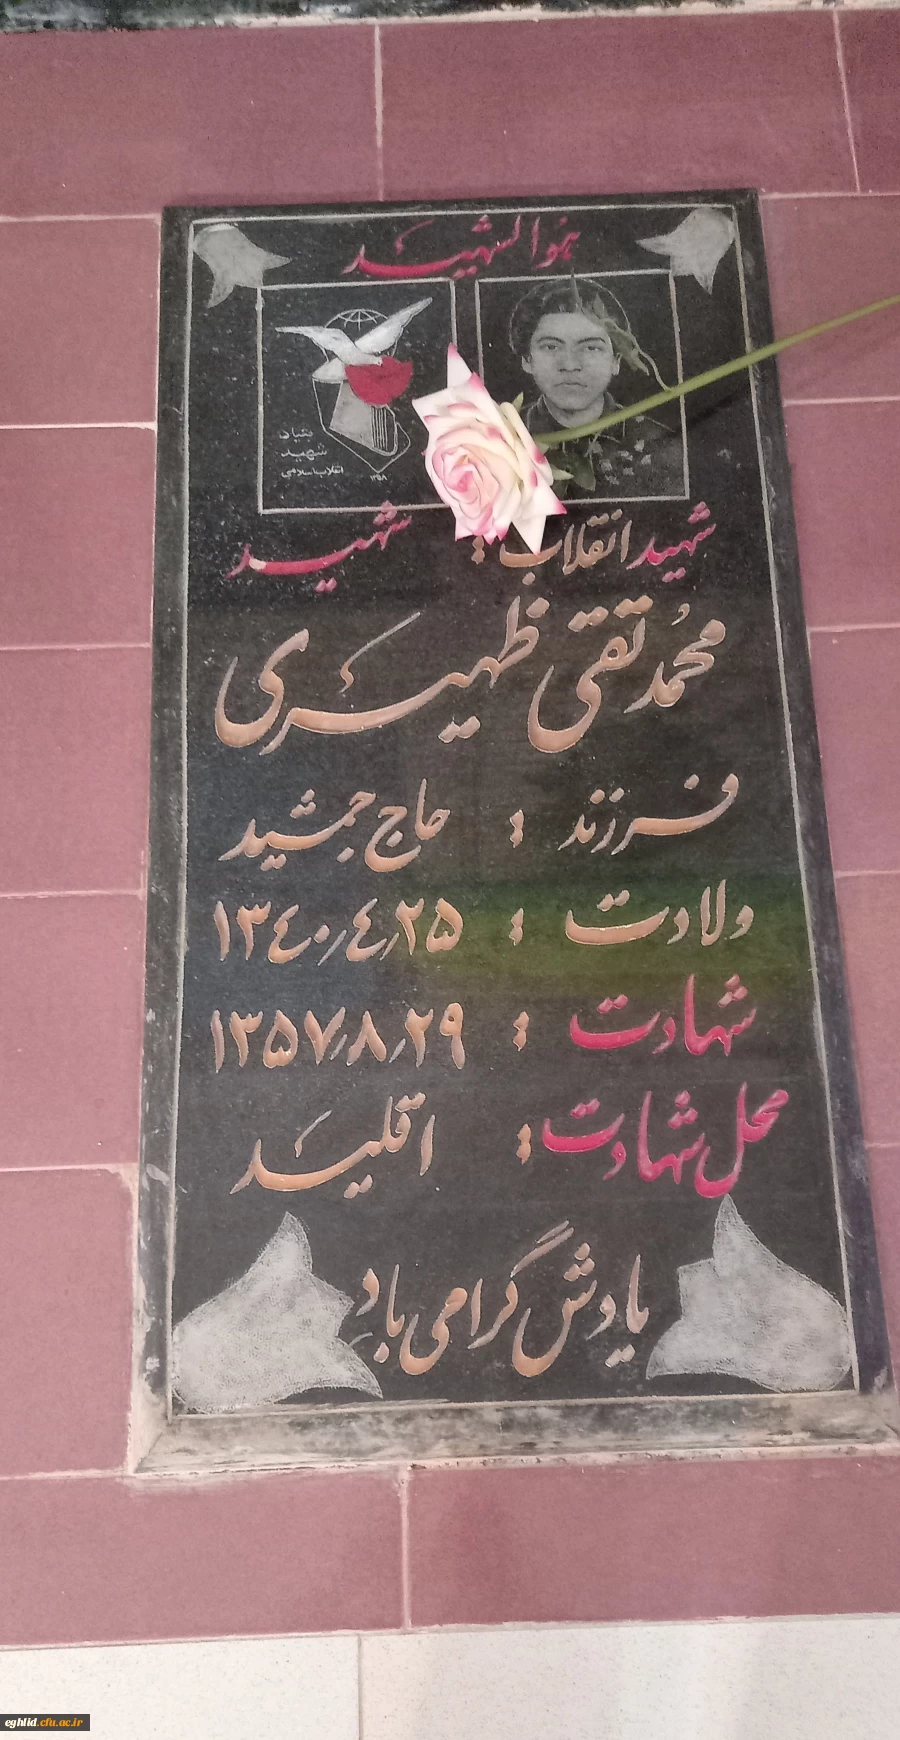 هوالشهید
بنیاد
شهید
انقلاب اسلامی
۱۳۵۸
شهید انقلاب : شهید
محمدتقی ظهیری
فرزند : حاج جمشید
ولادت : ۱۳۴۰٫۴٫۲۵
شهادت : ۱۳۵۷٫۸٫۲۹
محل شهادت : اقلید
یادش گرامی باد
eghlid.cfu.ac.ir